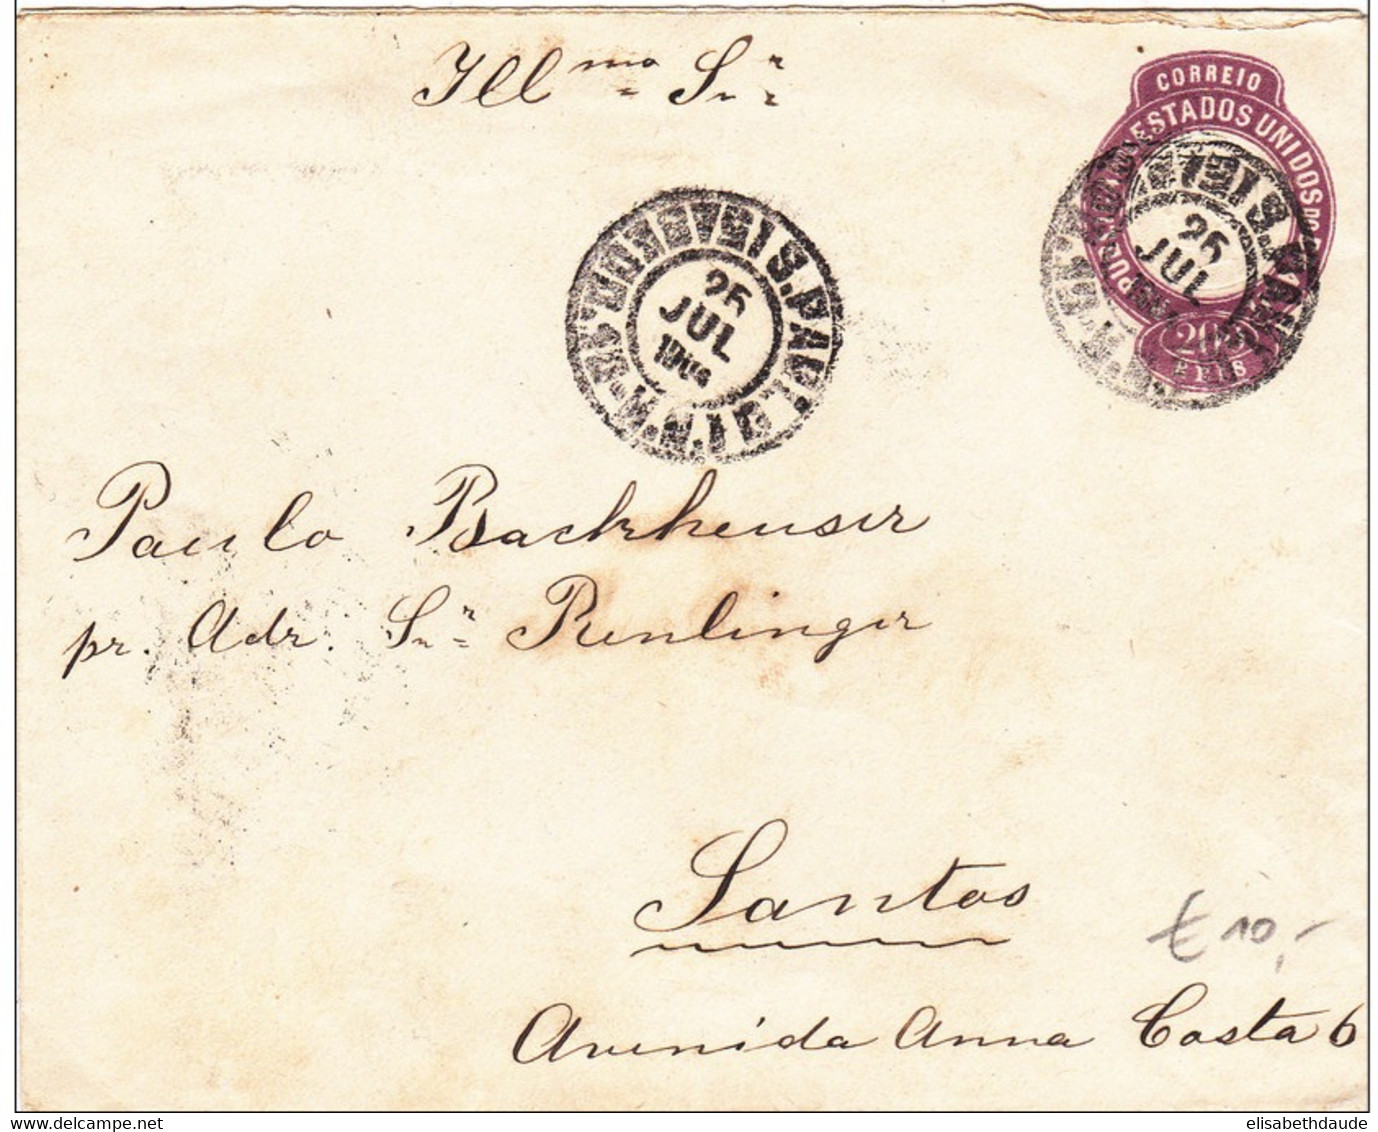 Illmo Snr
CORREIO
ESTADOS UNIDOS DO
200
REIS
25
JUL
S. PAULO
25
JUL
1904
Paulo Backheuser
pr. Adr. Snr Renlinger
Santos
€ 10,-
Avenida Anna Costa 6
elisabethdaude